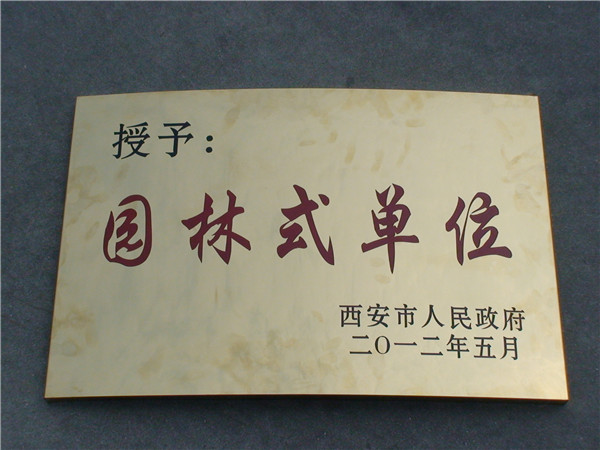 授予：
园林式单位
西安市人民政府
二〇一二年五月